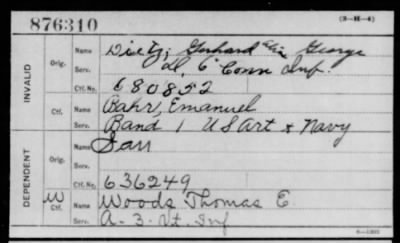 876310
(3-H-4)
INVALID
Orig.
Name Dietz, Gerhard alias George
Serv. D, 6" Conn Inf.
Ctf. No. 680852
Ctf.
Name Bahr, Emanuel
Serv. Band 1 US Art & Navy
DEPENDENT
Orig.
Name
Serv.
Ctf. No. 636249
W
Ctf.
Name Woods Thomas E.
Serv. A. 3. Vt. Inf